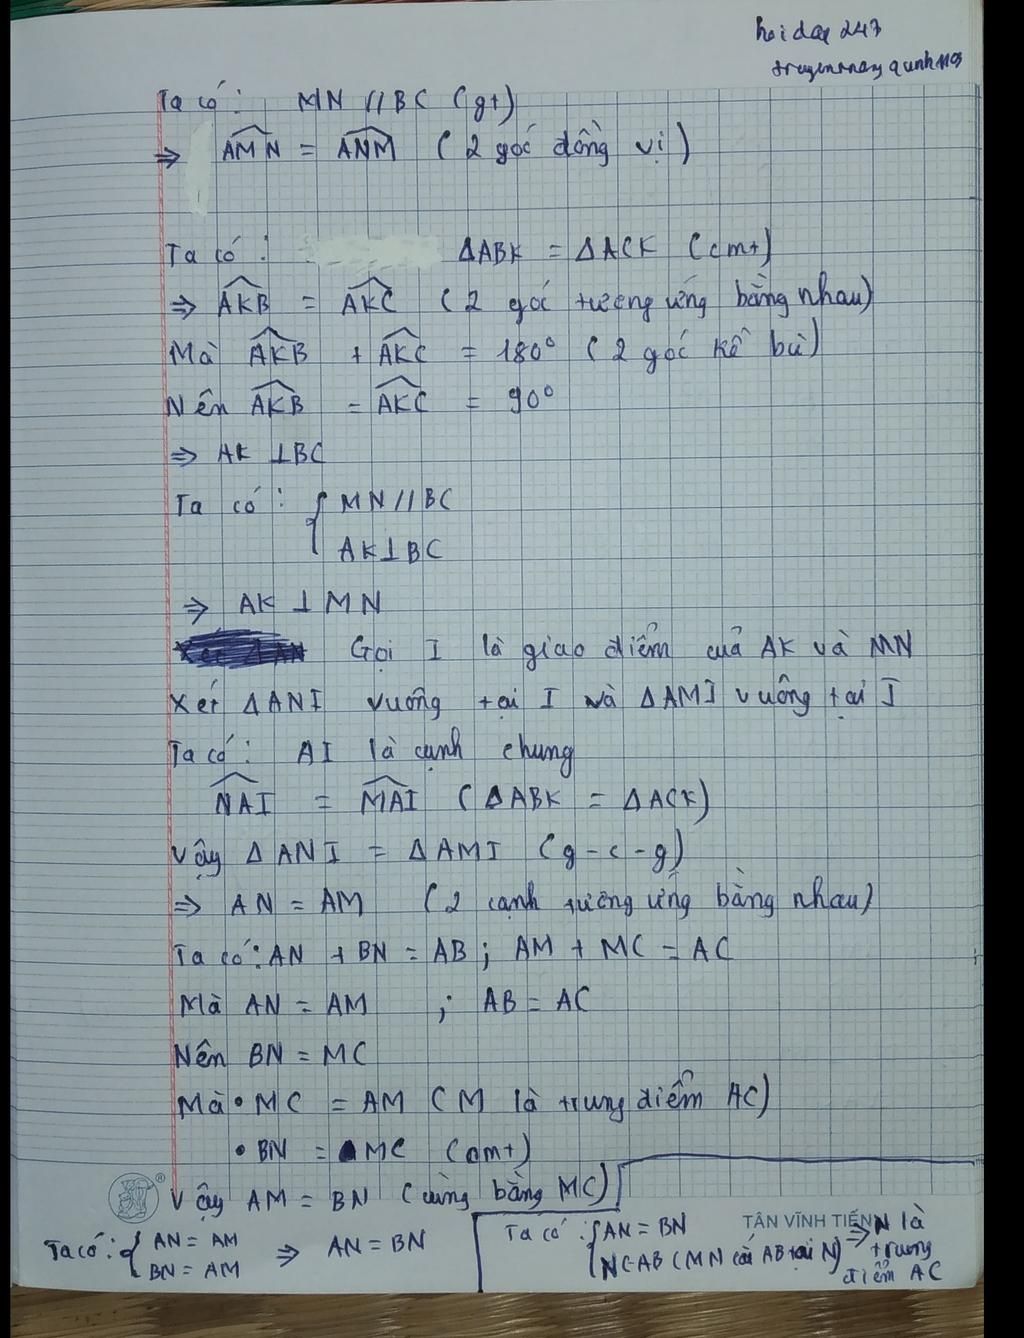 hoidap 247
Ta có: MN // BC (gt)
⇒ AMN = ANM (2 góc đồng vị)
Ta có: ΔABK = ΔACK (cmt)
⇒ AKB = AKC (2 góc tương ứng bằng nhau)
Mà AKB + AKC = 180° (2 góc kề bù)
Nên AKB = AKC = 90°
⇒ AK ⊥ BC
Ta có: { MN // BC
AK ⊥ BC
⇒ AK ⊥ MN
Gọi I là giao điểm của AK và MN
Xét ΔANI vuông tại I và ΔAMI vuông tại I
Ta có: AI là cạnh chung
NAI = MAI (ΔABK = ΔACK)
Vậy ΔANI = ΔAMI (g-c-g)
⇒ AN = AM (2 cạnh tương ứng bằng nhau)
Ta có: AN + BN = AB; AM + MC = AC
Mà AN = AM ; AB = AC
Nên BN = MC
Mà • MC = AM (M là trung điểm AC)
• BN = MC (cmt)
Vậy AM = BN (cùng bằng MC)
Ta có: { AN = AM
BN = AM
⇒ AN = BN
TÂN VĨNH TIẾN
Ta có: { AN = BN
N∈AB (MN cắt AB tại N)
⇒ N là
trung
điểm AC